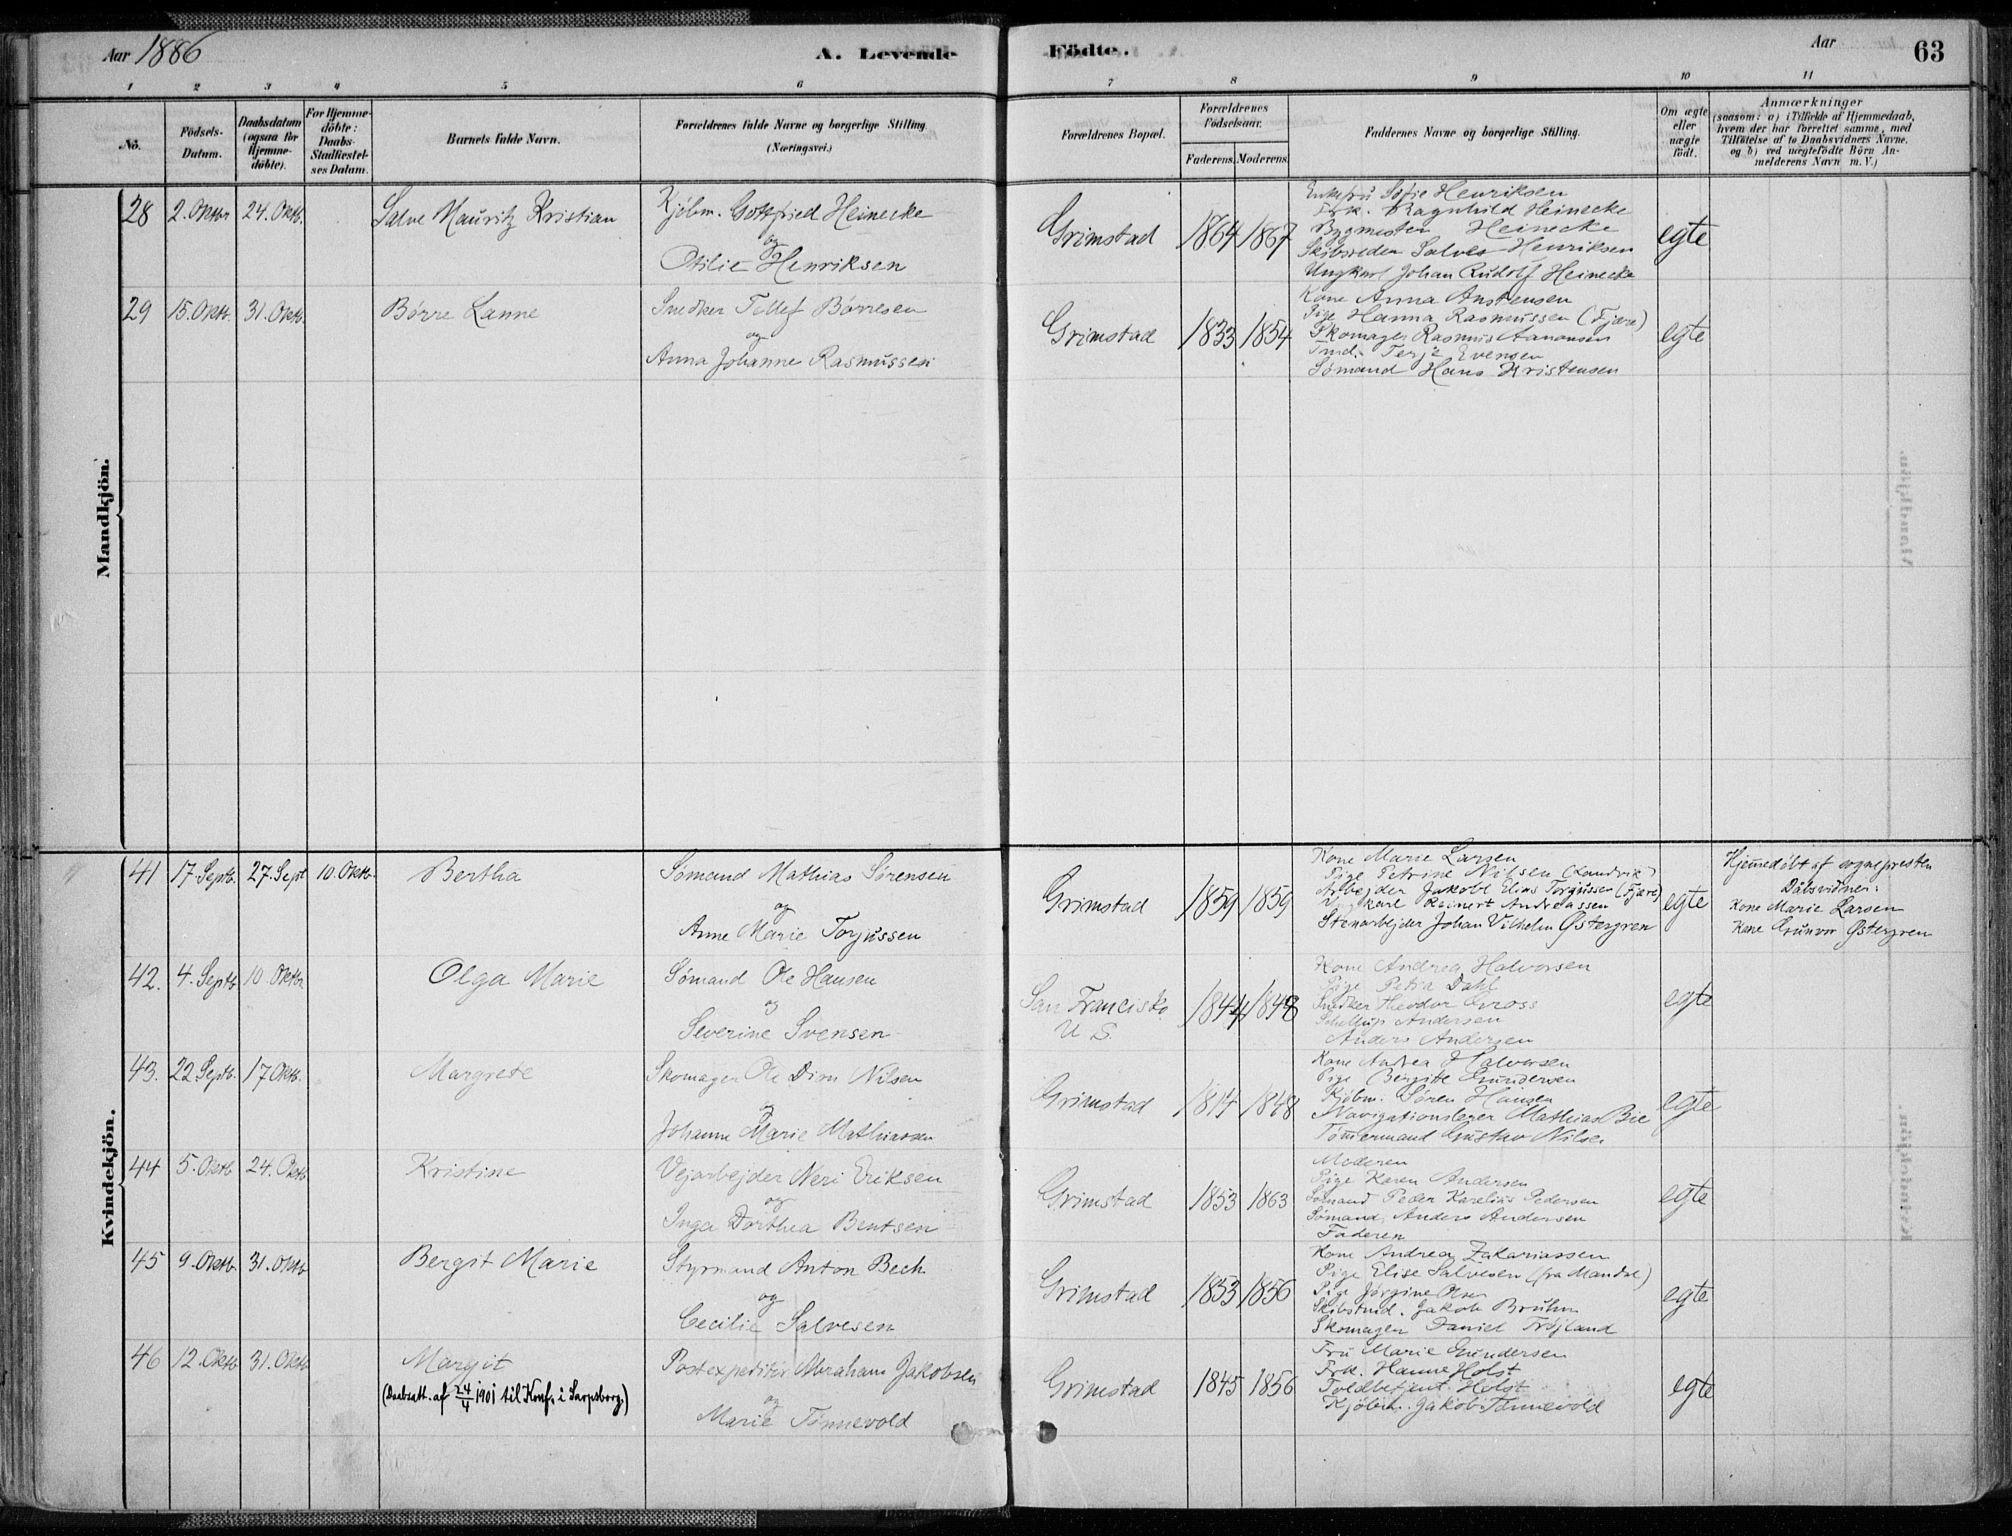 Aar 1886
A. Levende Födte.
Aar
63
1 2 3 4 5 6 7 8 9 10 11
No.
Födsels-Datum.
Daabsdatum (ogsaa for Hjemme-döbte).
For Hjemme-döbte: Daabs-Stadfæstel-ses Datum.
Barnets fulde Navn.
Forældrenes fulde Navne og borgerlige Stilling (Næringsvei.)
Forældrenes Bopæl.
Forældrenes Födselsaar.
Faderens. Moderens.
Faddernes Navne og borgerlige Stilling.
Om ægte eller uægte födt.
Anmærkninger
(saasom: a) i Tilfælde af Hjemmedaab,
hvem der har forrettet samme, med
Tilföielse af to Daabsvidners Navne,
og b) ved uægtefödte Börn An-
melderens Navn m. V.)
Mandkjön.
28 2. Oktbr 24. Oktb. Salve Mauritz Kristian
Kjöbm. Gottfried Heinecke
og
Otilie Henriksen
Grimstad 1864 1867
Enkefru Sofie Henriksen
Frk. Ragnhild Heinecke
Bygmester Heinecke
Skibsreder Salves Henriksen
Ungkarl Johan Rudolf Heinecke
egte
29 15. Oktb. 31. Oktb. Börre Lanne
Snedker Tellef Börresen
og
Anna Johanne Rasmussen
Grimstad 1833 1854
Kone Anna Anstensen
Pige Hanna Rasmussen (Fjære)
Skomager Rasmus Aanonsen
Tmd. Terje Evensen
Sömand Hans Kristensen
egte
Kvindekjön.
41 17. Septb. 27. Sept 10. Oktb. Bertha
Sömand Mathias Sörensen
og
Anne Marie Torjussen
Grimstad 1859 1859
Kone Marie Larsen
Pige Petrine Nilsen (Landvik)
Arbejder Jakob Elias Torjussen (Fjære)
Ungkarl Reinert Andreassen
Stenarbejder Johan Vilhelm Østergren
egte
Hjemmedöbt af sognepresten
Dåbsvidner:
Kone Marie Larsen
Kone Gunvor Østergren
42. 4. Septb 10 Oktbr Olga Marie
Sömand Ole Hansen
og
Severine Svensen
San Francisko
U. S.
1844 1848
Kone Andrea Halvorsen
Pige Petra Dahl
Snedker Theodor Gross
Andersen
Anders Andersen
egte
43. 22 Septb. 17 Oktb. Margrete
Skomager Ole Dirn Nilsen
og
Johanne Marie Mathiassen
Grimstad 1814 1848
Kone Andrea Halvorsen
Pige Bergitte Gundersen
Kjöbm. Sören Hansen
Navigationslerer Mathias Bie
Tömmermand Gustav Nilsen
egte
44 5. Oktb 24. Oktb Kristine
Vejarbejder Neri Eriksen
og
Inga Dorthea Bentsen
Grimstad 1853 1863
Moderen
Pige Karen Andersen
Sömand Peder Karelius Pedersen
Sömand Anders Andersen
Faderen
egte
45 9. Oktb. 31. Oktb Bergit Marie
Styrmand Anton Bech
og
Cecilie Salvesen
Grimstad 1853 1856
Kone Andrea Zakariassen
Pige Elise Salvesen (fra Mandal)
Pige Jörgine Olsen
Skibstmd. Jakob Bruhn
Skomager Daniel Fröjland
egte
46 12. Oktb 31. Oktb Margit
(Daabsatt. af 24/4 1901 til Konf. i Sarpsborg.)
Postexpeditör Abraham Jakobsen
og
Marie Tönnevold
Grimstad 1845 1856
Fru Marie Gundersen
Frk. Hanne Holst
Toldbetjent Holst
Kjöbm. Jakob Tönnevold
egte